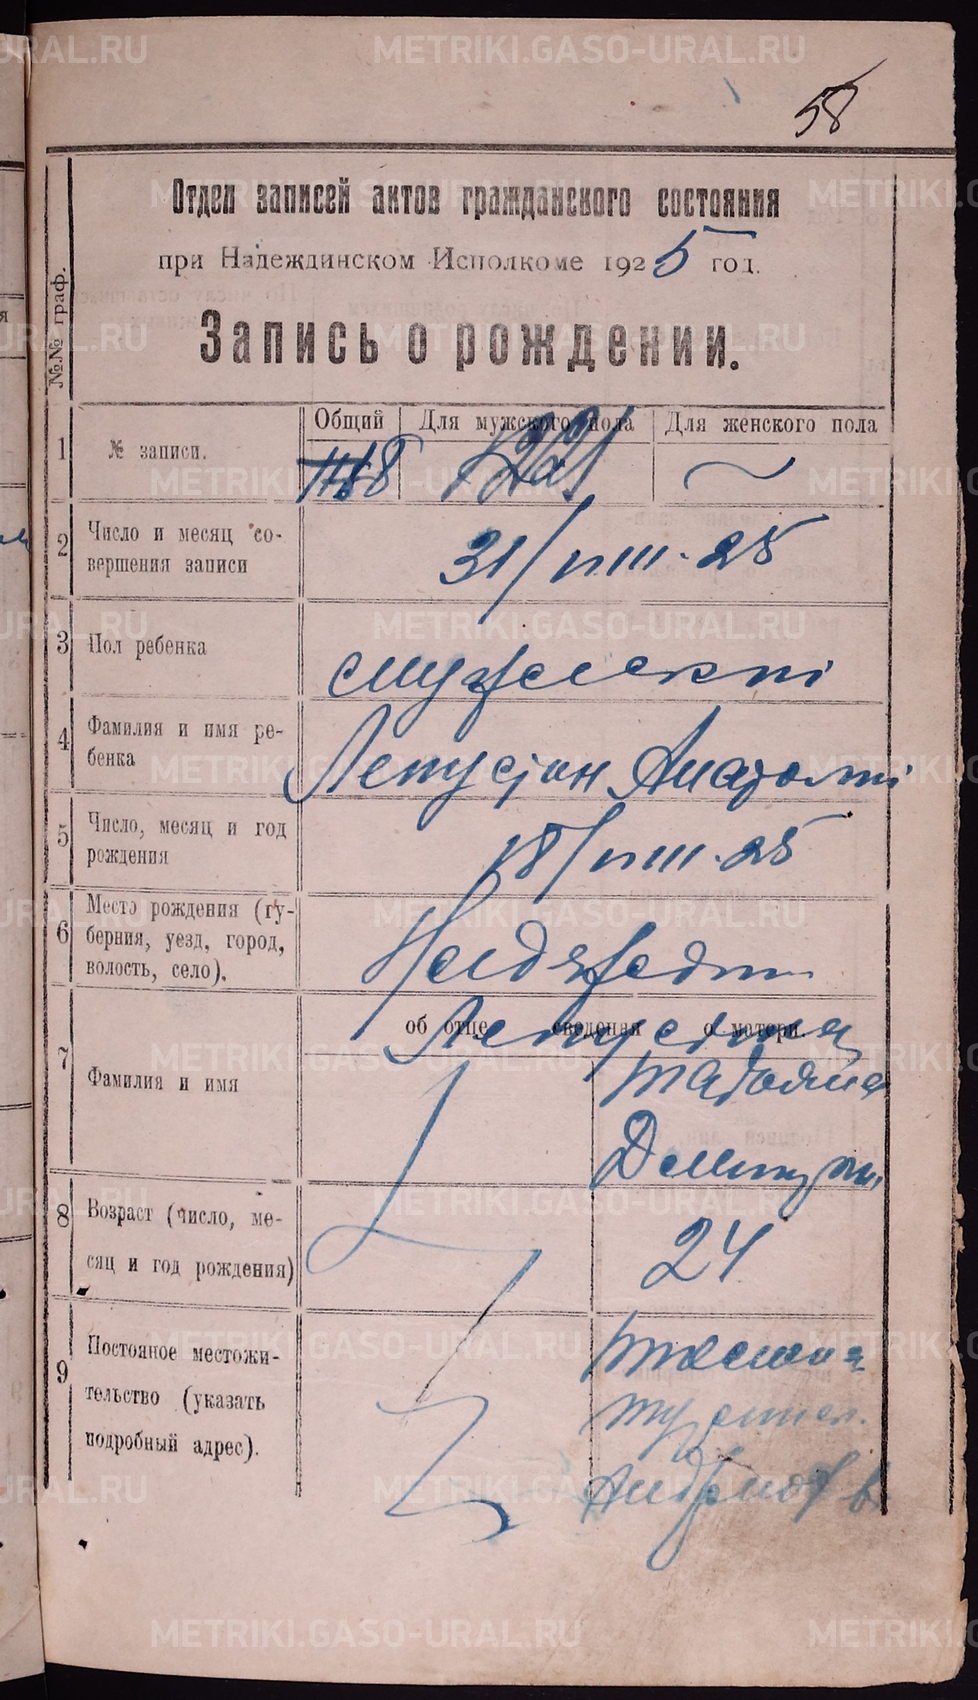 58
Отдел записей актов гражданского состояния
при Надеждинском Исполкоме 1925 год.
Запись о рождении.
№№ граф.
1
№ записи.
Общий
Для мужского пола
Для женского пола
2
Число и месяц со-
вершения записи
31/VIII-25
3
Пол ребенка
мужской
4
Фамилия и имя ре-
бенка
Анатолий
5
Число, месяц и год
рождения
18/VIII-25
6
Место рождения (гу-
берния, уезд, город,
волость, село).
7
об отце
сведения
о матери.
Фамилия и имя
Татьяна
8
Возраст (число, ме-
сяц и год рождения)
24
9
Постоянное местожи-
тельство (указать
подробный адрес).
METRIKI.GASO-URAL.RU